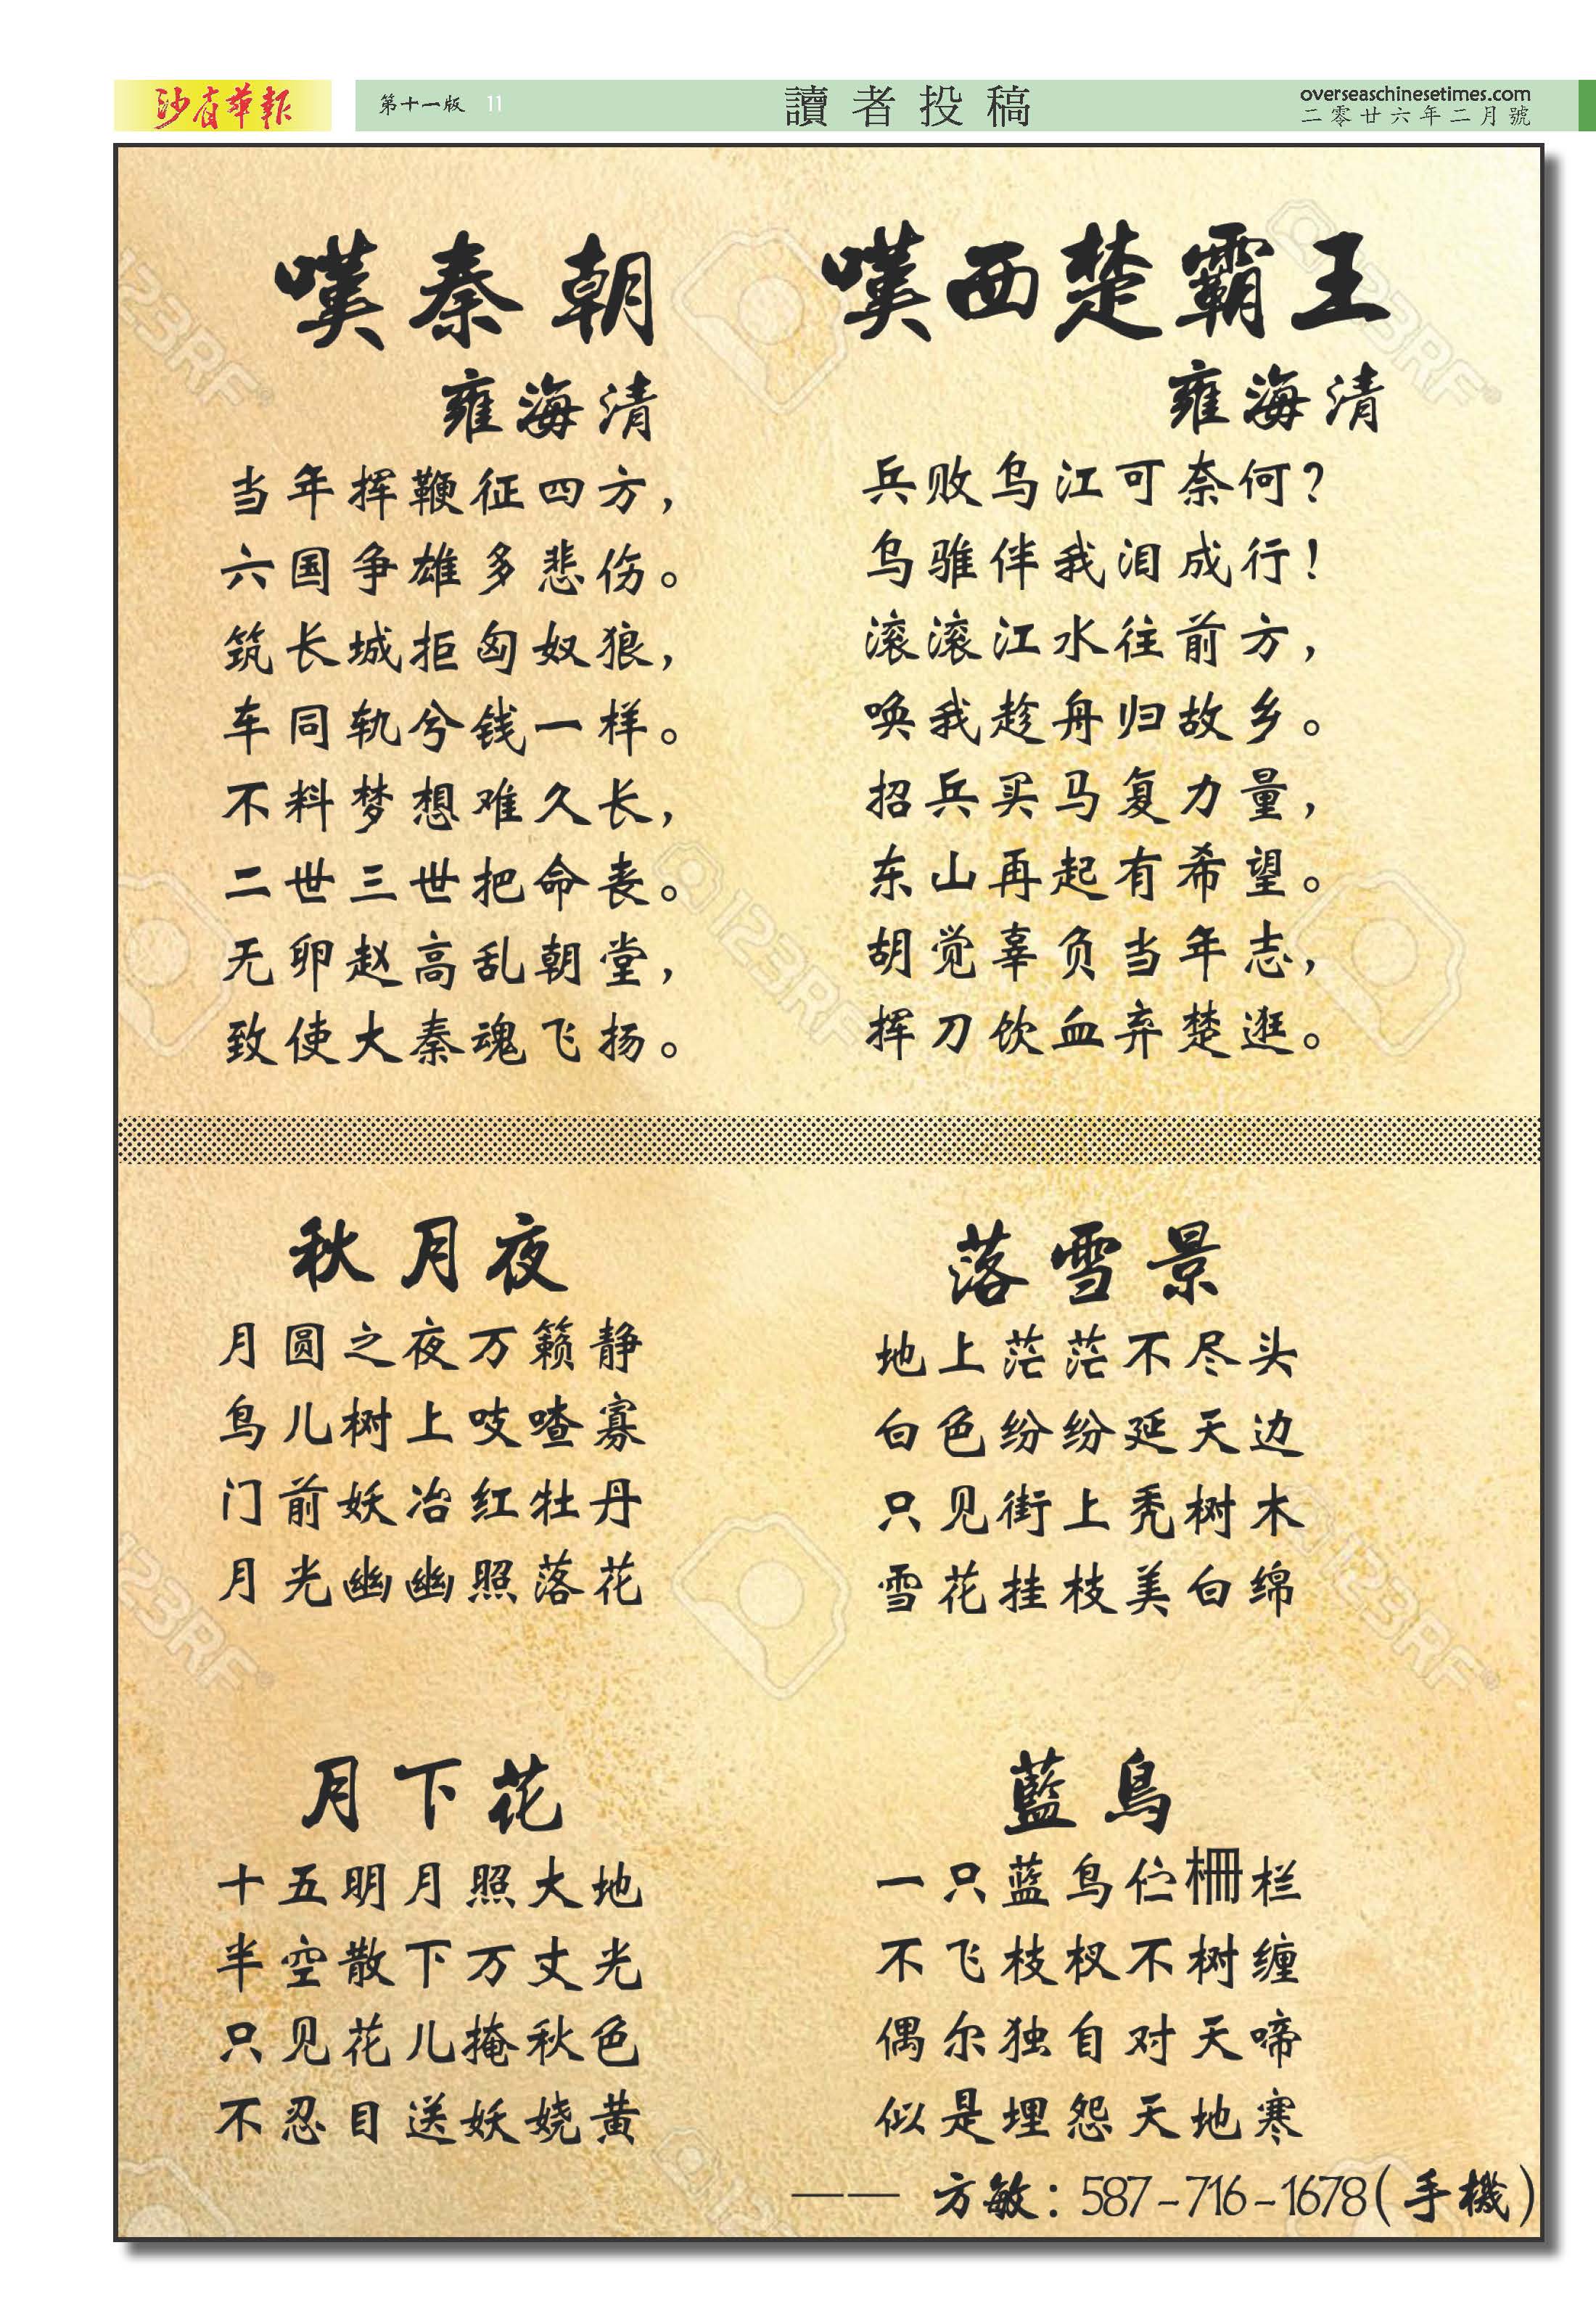 沙省華報
第十一版 11
讀者投稿
overseaschinesetimes.com
二零廿六年二月號
嘆秦朝
雍海清
当年挥鞭征四方，
六国争雄多悲伤。
筑长城拒匈奴狼，
车同轨兮钱一样。
不料梦想难久长，
二世三世把命丧。
无卵赵高乱朝堂，
致使大秦魂飞扬。
嘆西楚霸王
雍海清
兵败乌江可奈何？
乌骓伴我泪成行！
滚滚江水往前方，
唤我趁舟归故乡。
招兵买马复力量，
东山再起有希望。
胡觉辜负当年志，
挥刀饮血弃楚逛。
秋月夜
月圆之夜万籁静
鸟儿树上吱喳寡
门前妖冶红牡丹
月光幽幽照落花
落雪景
地上茫茫不尽头
白色纷纷延天边
只见街上秃树木
雪花挂枝美白绵
月下花
十五明月照大地
半空散下万丈光
只见花儿掩秋色
不忍目送妖娆黄
藍鳥
一只蓝鸟伫柵栏
不飞枝杈不树缠
偶尔独自对天啼
似是埋怨天地寒
—— 方敏：587-716-1678（手機）
123RF®
123RF®
123RF
123RF®
123RF®